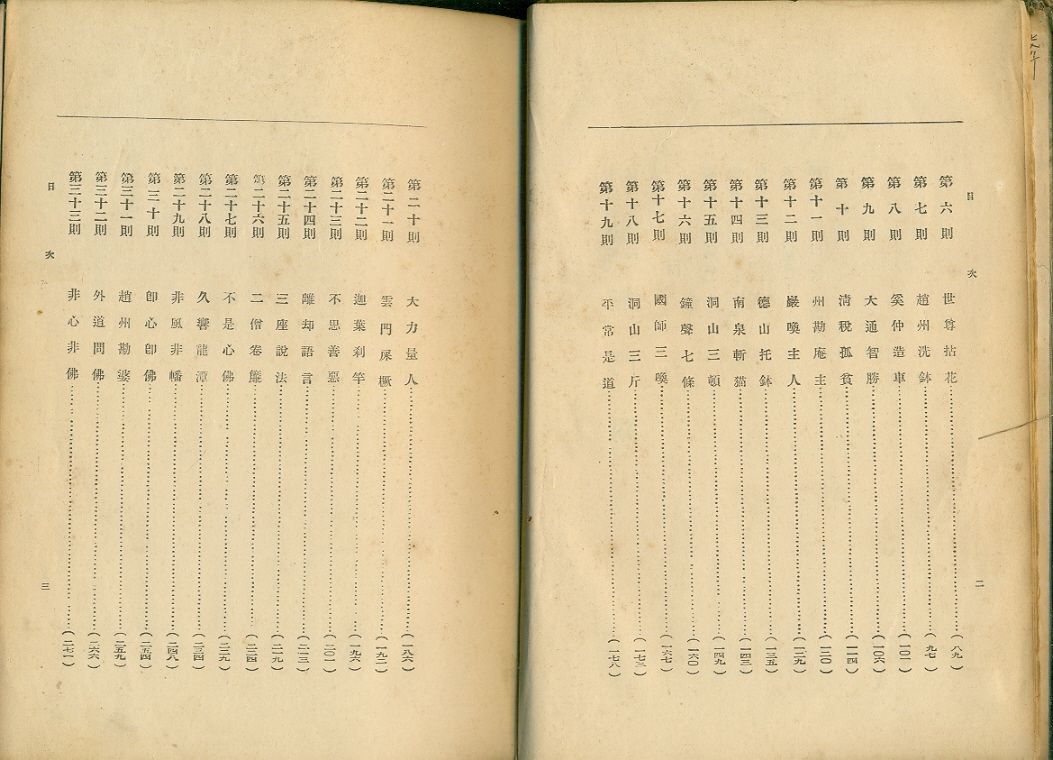 目次
第六則 世尊拈花……(八九)
第七則 趙州洗鉢……(九七)
第八則 奚仲造車……(一〇一)
第九則 大通智勝……(一〇六)
第十則 清稅孤貧……(一一四)
第十一則 州勘庵主……(一二〇)
第十二則 巖喚主人……(一二九)
第十三則 德山托鉢……(一三五)
第十四則 南泉斬猫……(一四三)
第十五則 洞山三頓……(一四九)
第十六則 鐘聲七條……(一六〇)
第十七則 國師三喚……(一六七)
第十八則 洞山三斤……(一七三)
第十九則 平常是道……(一七八)
二
第二十則 大力量人……(一八六)
第二十一則 雲門屎橛……(一九二)
第二十二則 迦葉刹竿……(一九六)
第二十三則 不思善惡……(二〇一)
第二十四則 離却語言……(二一三)
第二十五則 三座說法……(二一九)
第二十六則 二僧卷簾……(二二四)
第二十七則 不是心佛……(二二九)
第二十八則 久響龍潭……(二三四)
第二十九則 非風非幡……(二四八)
第三十則 卽心卽佛……(二五四)
第三十一則 趙州勘婆……(二五九)
第三十二則 外道問佛……(二六六)
第三十三則 非心非佛……(二七一)
目次
三